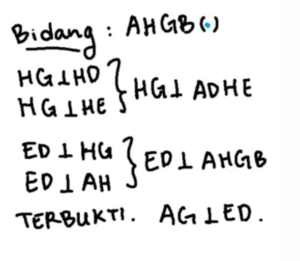 Bidang : AHGB (.)
HG ⊥ HD
HG ⊥ HE } HG ⊥ ADHE
ED ⊥ HG
ED ⊥ AH } ED ⊥ AHGB
TERBUKTI. AG ⊥ ED.